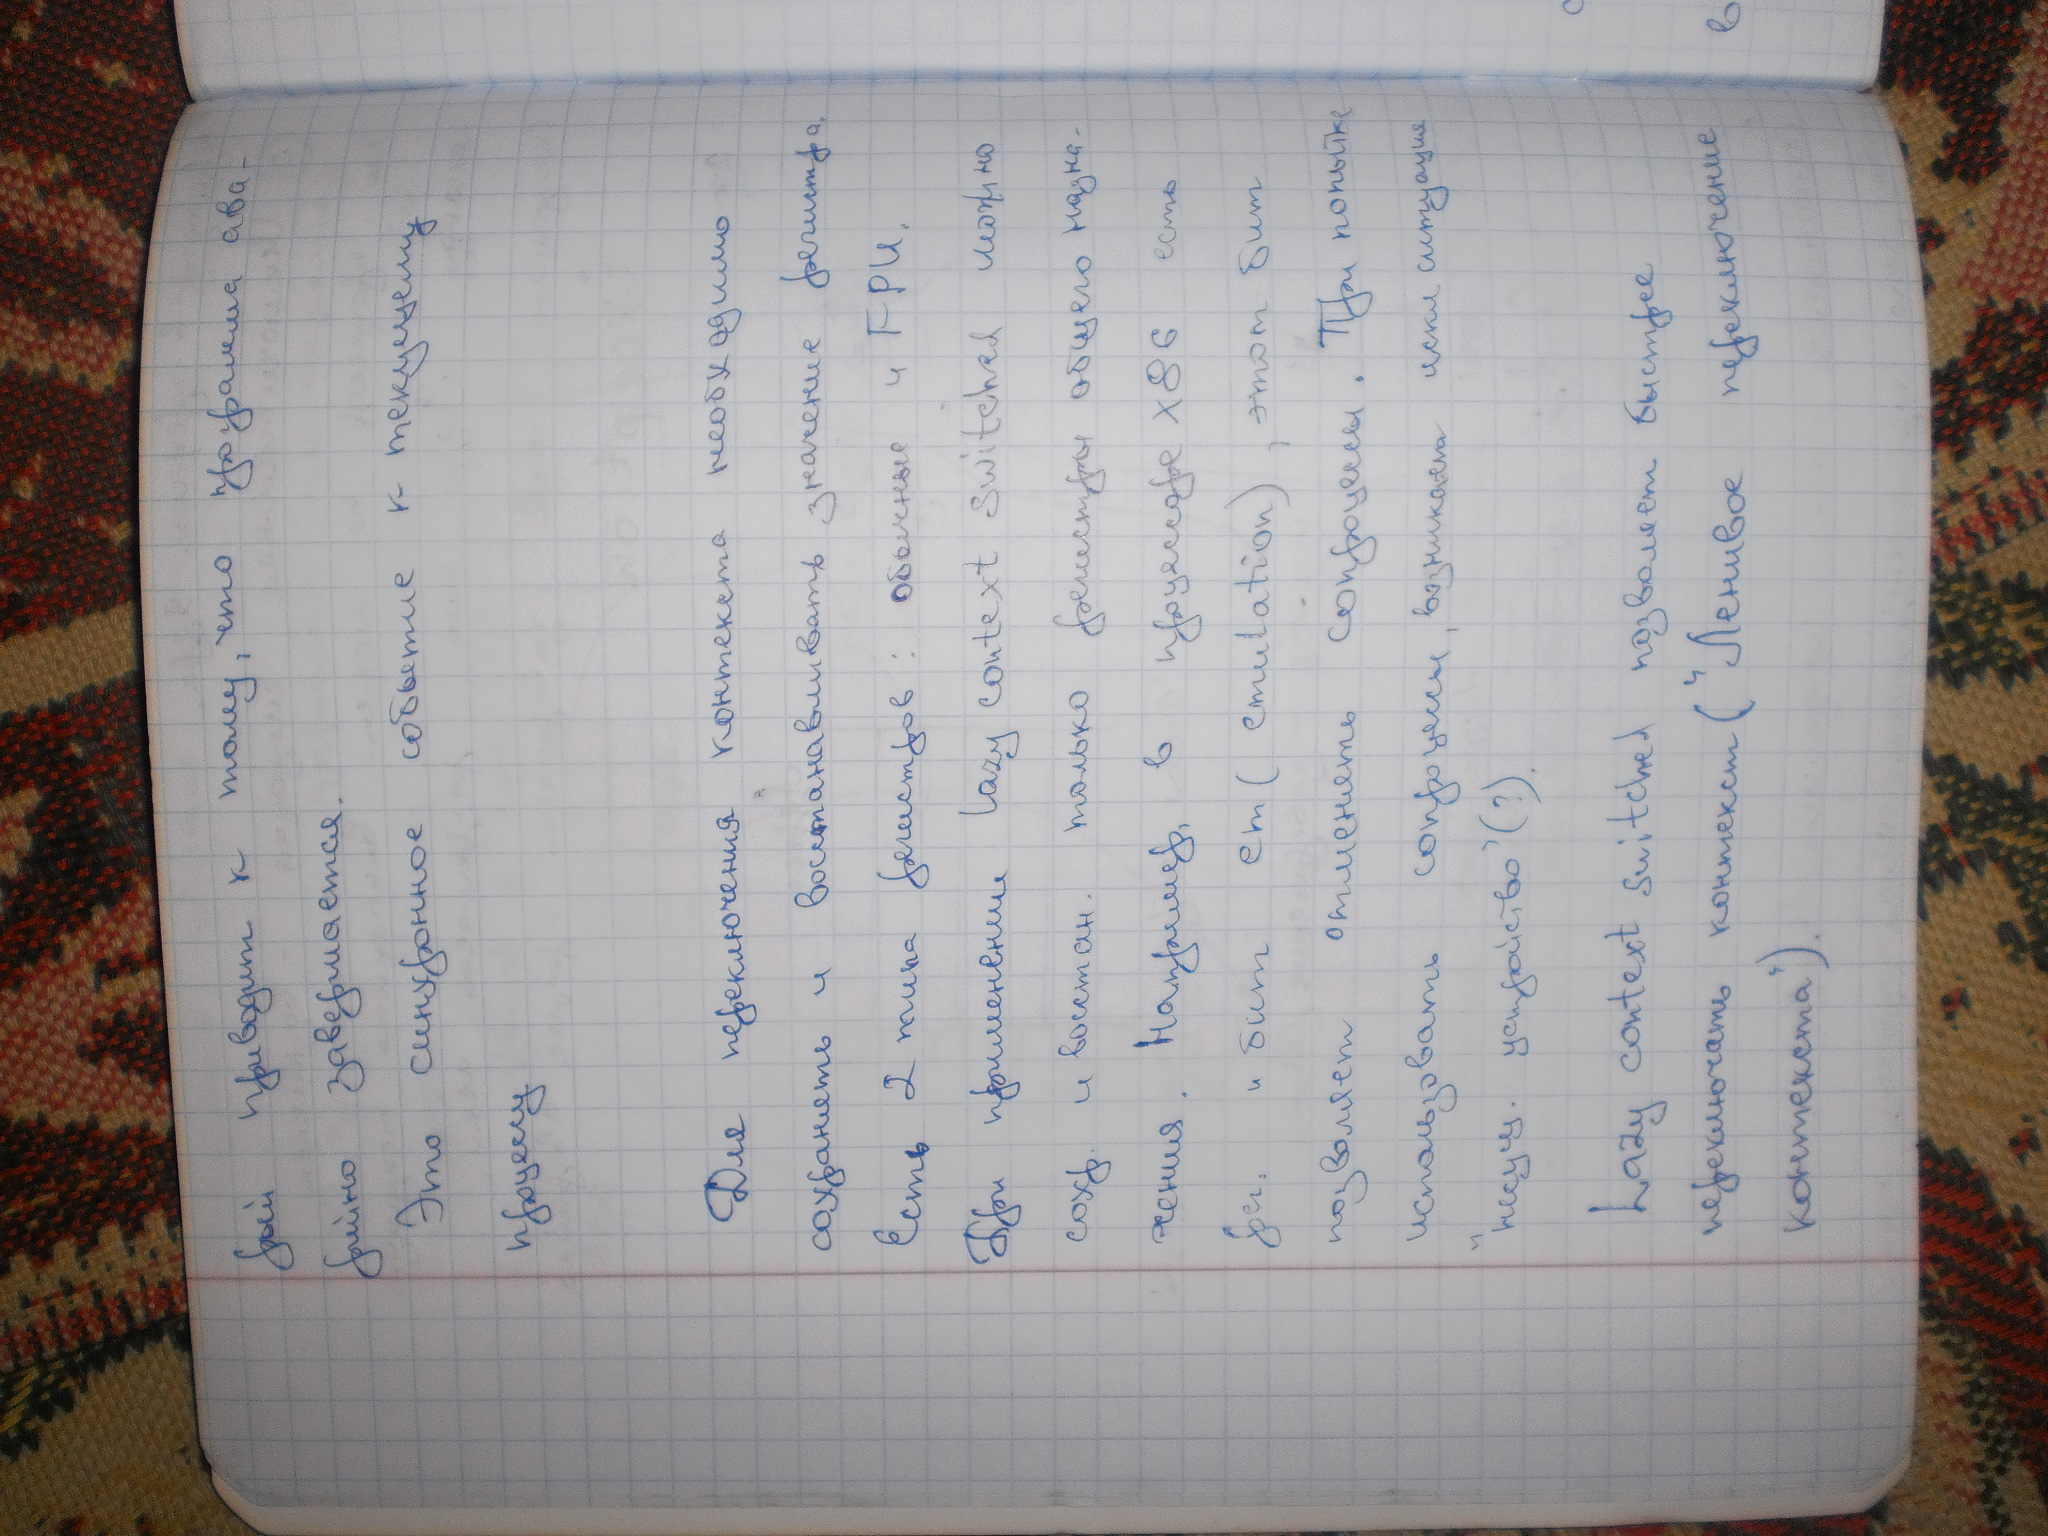 рый приводит к тому, что программа ава-
рийно завершается.
Это синхронное событие к текущему
процессу
Для переключения контекста необходимо
сохранять и восстанавливать значение регистра.
Есть 2 типа регистров: обычные и FPU.
При применении lazy context switched можно
сохр. и востан. только регистры общего назна-
чения. Например, в процессоре x86 есть
рег. и бит em (emulation), этот бит
позволяет отменять сопроцесы. При попытке
использовать сопроцесы, возникает искл ситуация
"несущ. устройство"(?).
Lazy context switched позволяет быстрее
переключать контекст ("Ленивое переключение
контекста").